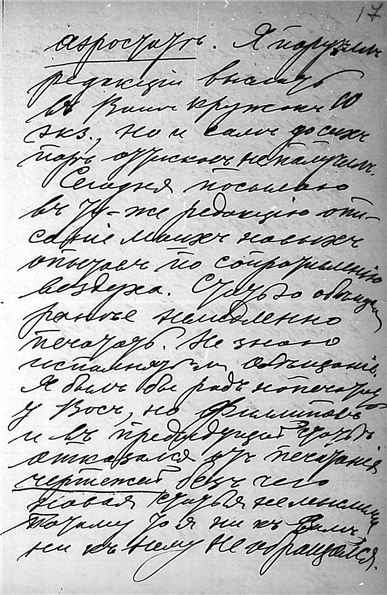 17
аэростатъ. Я поручилъ
редакціи выслать
въ Вашъ кружокъ 10
экз., но и самъ до сихъ
поръ оттисковъ не получилъ.
Сегодня посылаю
въ ту-же редакцію опи-
саніе моихъ новыхъ
опытовъ по сопротивленію
воздуха. Статью обѣщали
раньше немедленно
печатать. Не знаю
исполнятъ ли обѣщаніе.
Я былъ бы радъ напечатать
у Васъ, но Филипповъ
и въ предыдущей статьѣ
отказался отъ печатанія
чертежей безъ чего
новая статья немыслима
Потому то я ни къ Вамъ
ни къ нему не обращался.